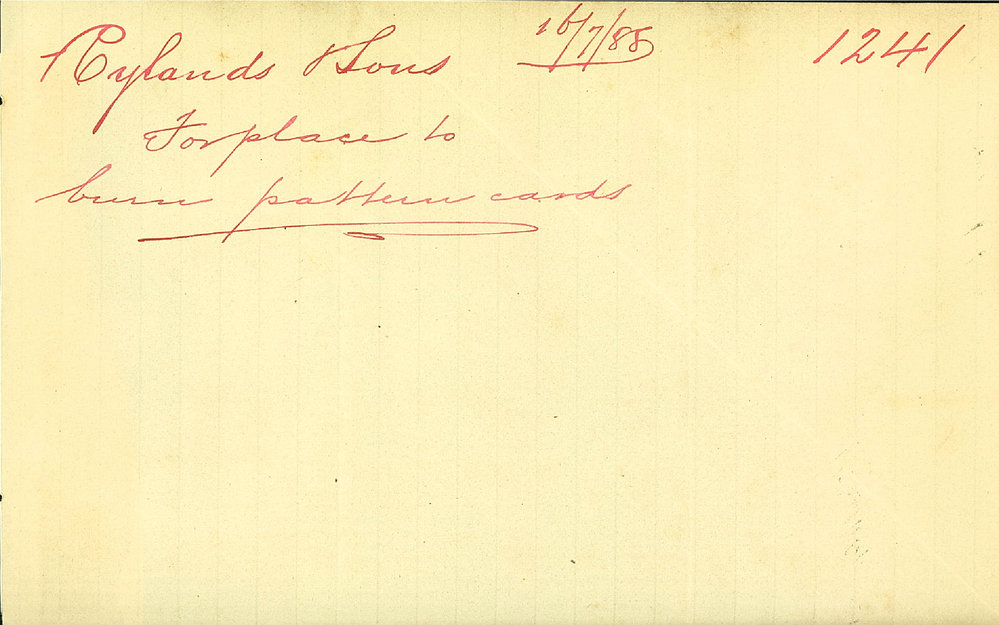 Rylands & Sons 16/7/88 1241
For place to
burn pattern cards